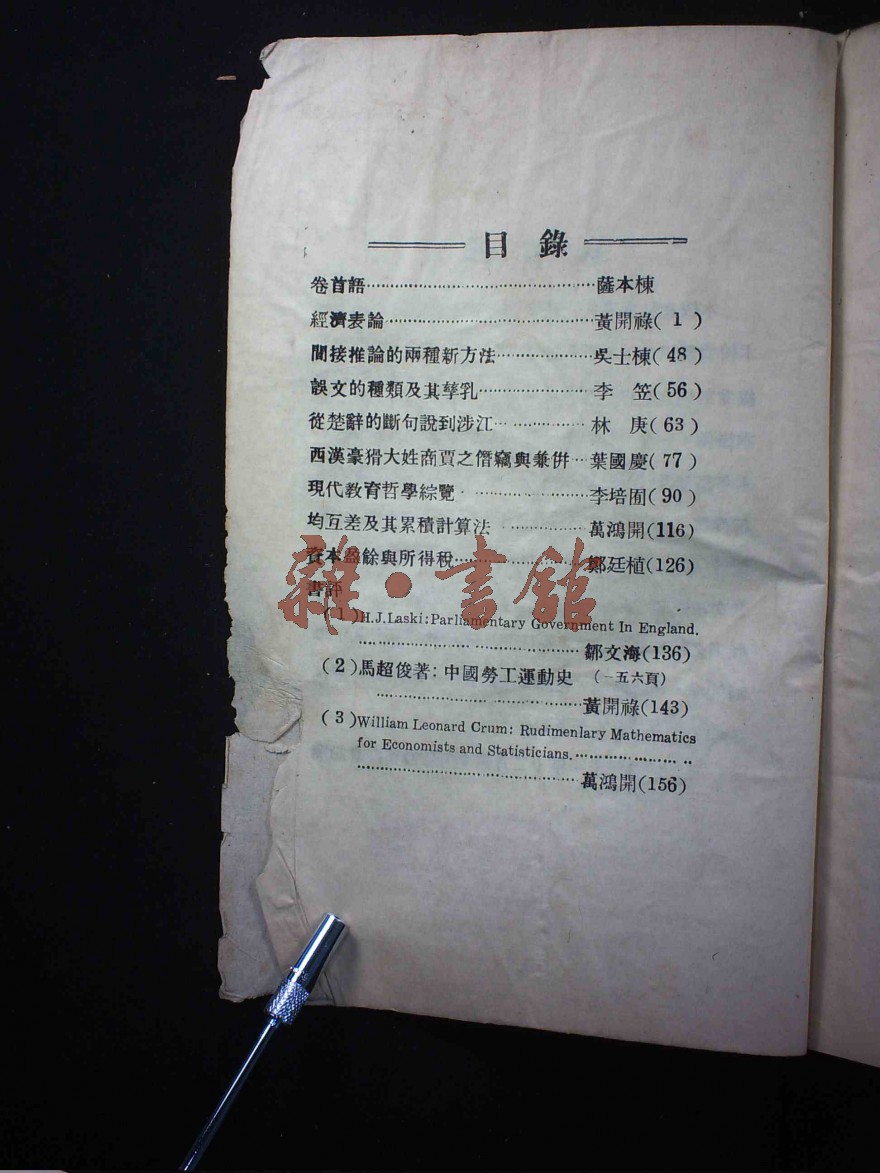 目錄
卷首語……………………………薩本棟
經濟表論……………………………黃開祿( 1 )
間接推論的兩種新方法………………吳士棟(48)
誤文的種類及其孳乳…………………李 笠(56)
從楚辭的斷句說到涉江… ……………林 庚(63)
西漢豪猾大姓商賈之僭竊與兼併…葉國慶(77)
現代教育哲學綜覽 · ………………李培囿(90)
均互差及其累積計算法 · ……………萬鴻開(116)
資本盈餘與所得稅……………………鄭廷植(126)
書評
(1)H.J.Laski:Parliamentary Government In England.
……………………………鄒文海(136)
(2)馬超俊著:中國勞工運動史 (一五六頁)
……………………………黃開祿(143)
(3)William Leonard Crum: Rudimenlary Mathematics
for Economists and Statisticians.………………
……………………………萬鴻開(156)
雜·書舘